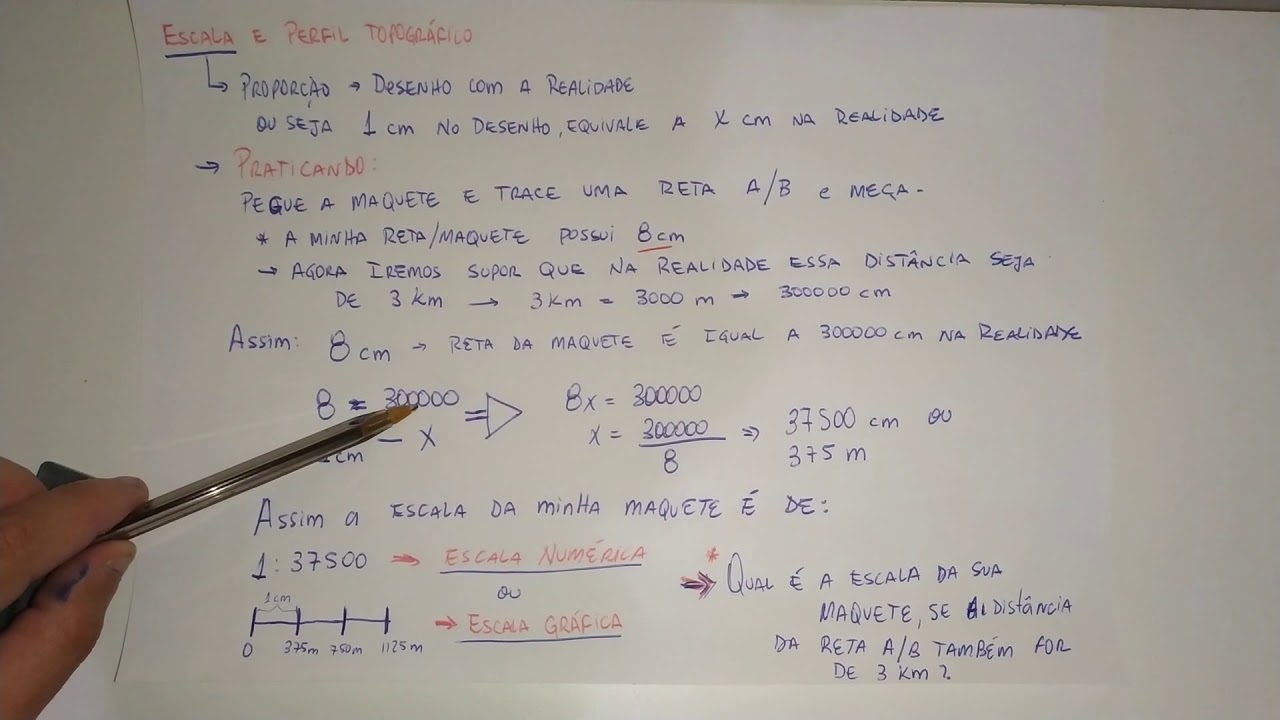 ESCALA E PERFIL TOPOGRÁFICO
PROPORÇÃO → DESENHO COM A REALIDADE
OU SEJA 1 cm NO DESENHO, EQUIVALE A X cm NA REALIDADE
→ PRATICANDO:
PEGUE A MAQUETE E TRACE UMA RETA A/B e MEÇA-
* A MINHA RETA/MAQUETE POSSUI 8cm
→ AGORA IREMOS SUPOR QUE NA REALIDADE ESSA DISTÂNCIA SEJA
DE 3 Km → 3Km = 3000 m → 300000 cm
Assim: 8cm → RETA DA MAQUETE É IGUAL A 300000 cm NA REALIDADE
8 = 300000 ⇒ 8x = 300000
1cm — X x = 300000 / 8 ⇒ 37500 cm OU
375 m
Assim a ESCALA DA minha MAQUETE É DE:
1:37500 → ESCALA NUMÉRICA
OU
1cm
0 375m 750m 1125m → ESCALA GRÁFICA
* → QUAL É A ESCALA DA SUA
MAQUETE, SE A DISTÂNCIA
DA RETA A/B TAMBÉM FOR
DE 3 Km?